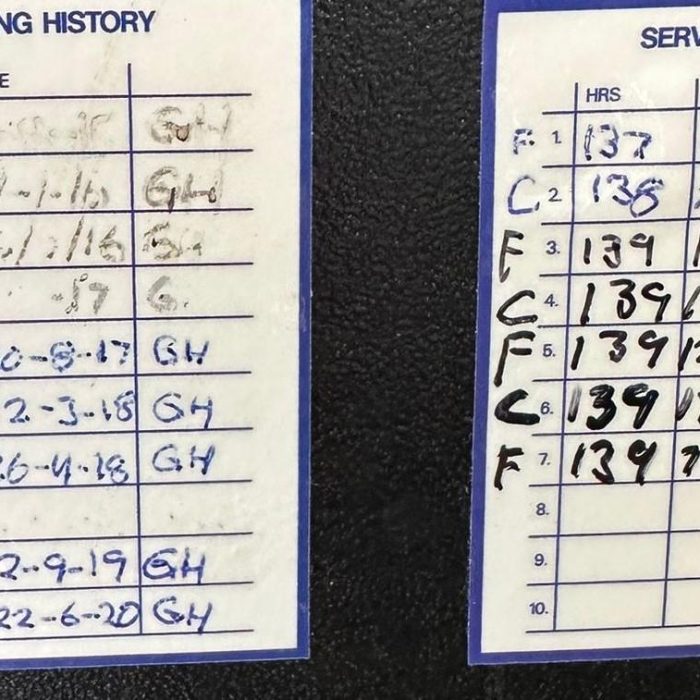 NG HISTORY
E
GH
1-1-16 GH
1/16 GH
-17 G.
0-8-17 GH
2-3-18 GH
26-4-18 GH
2-9-19 GH
22-6-20 GH
SERV
HRS
F 1. 137
C 2. 138
F 3. 139
C 4. 139
F 5. 139
C 6. 139
F 7. 139
8.
9.
10.